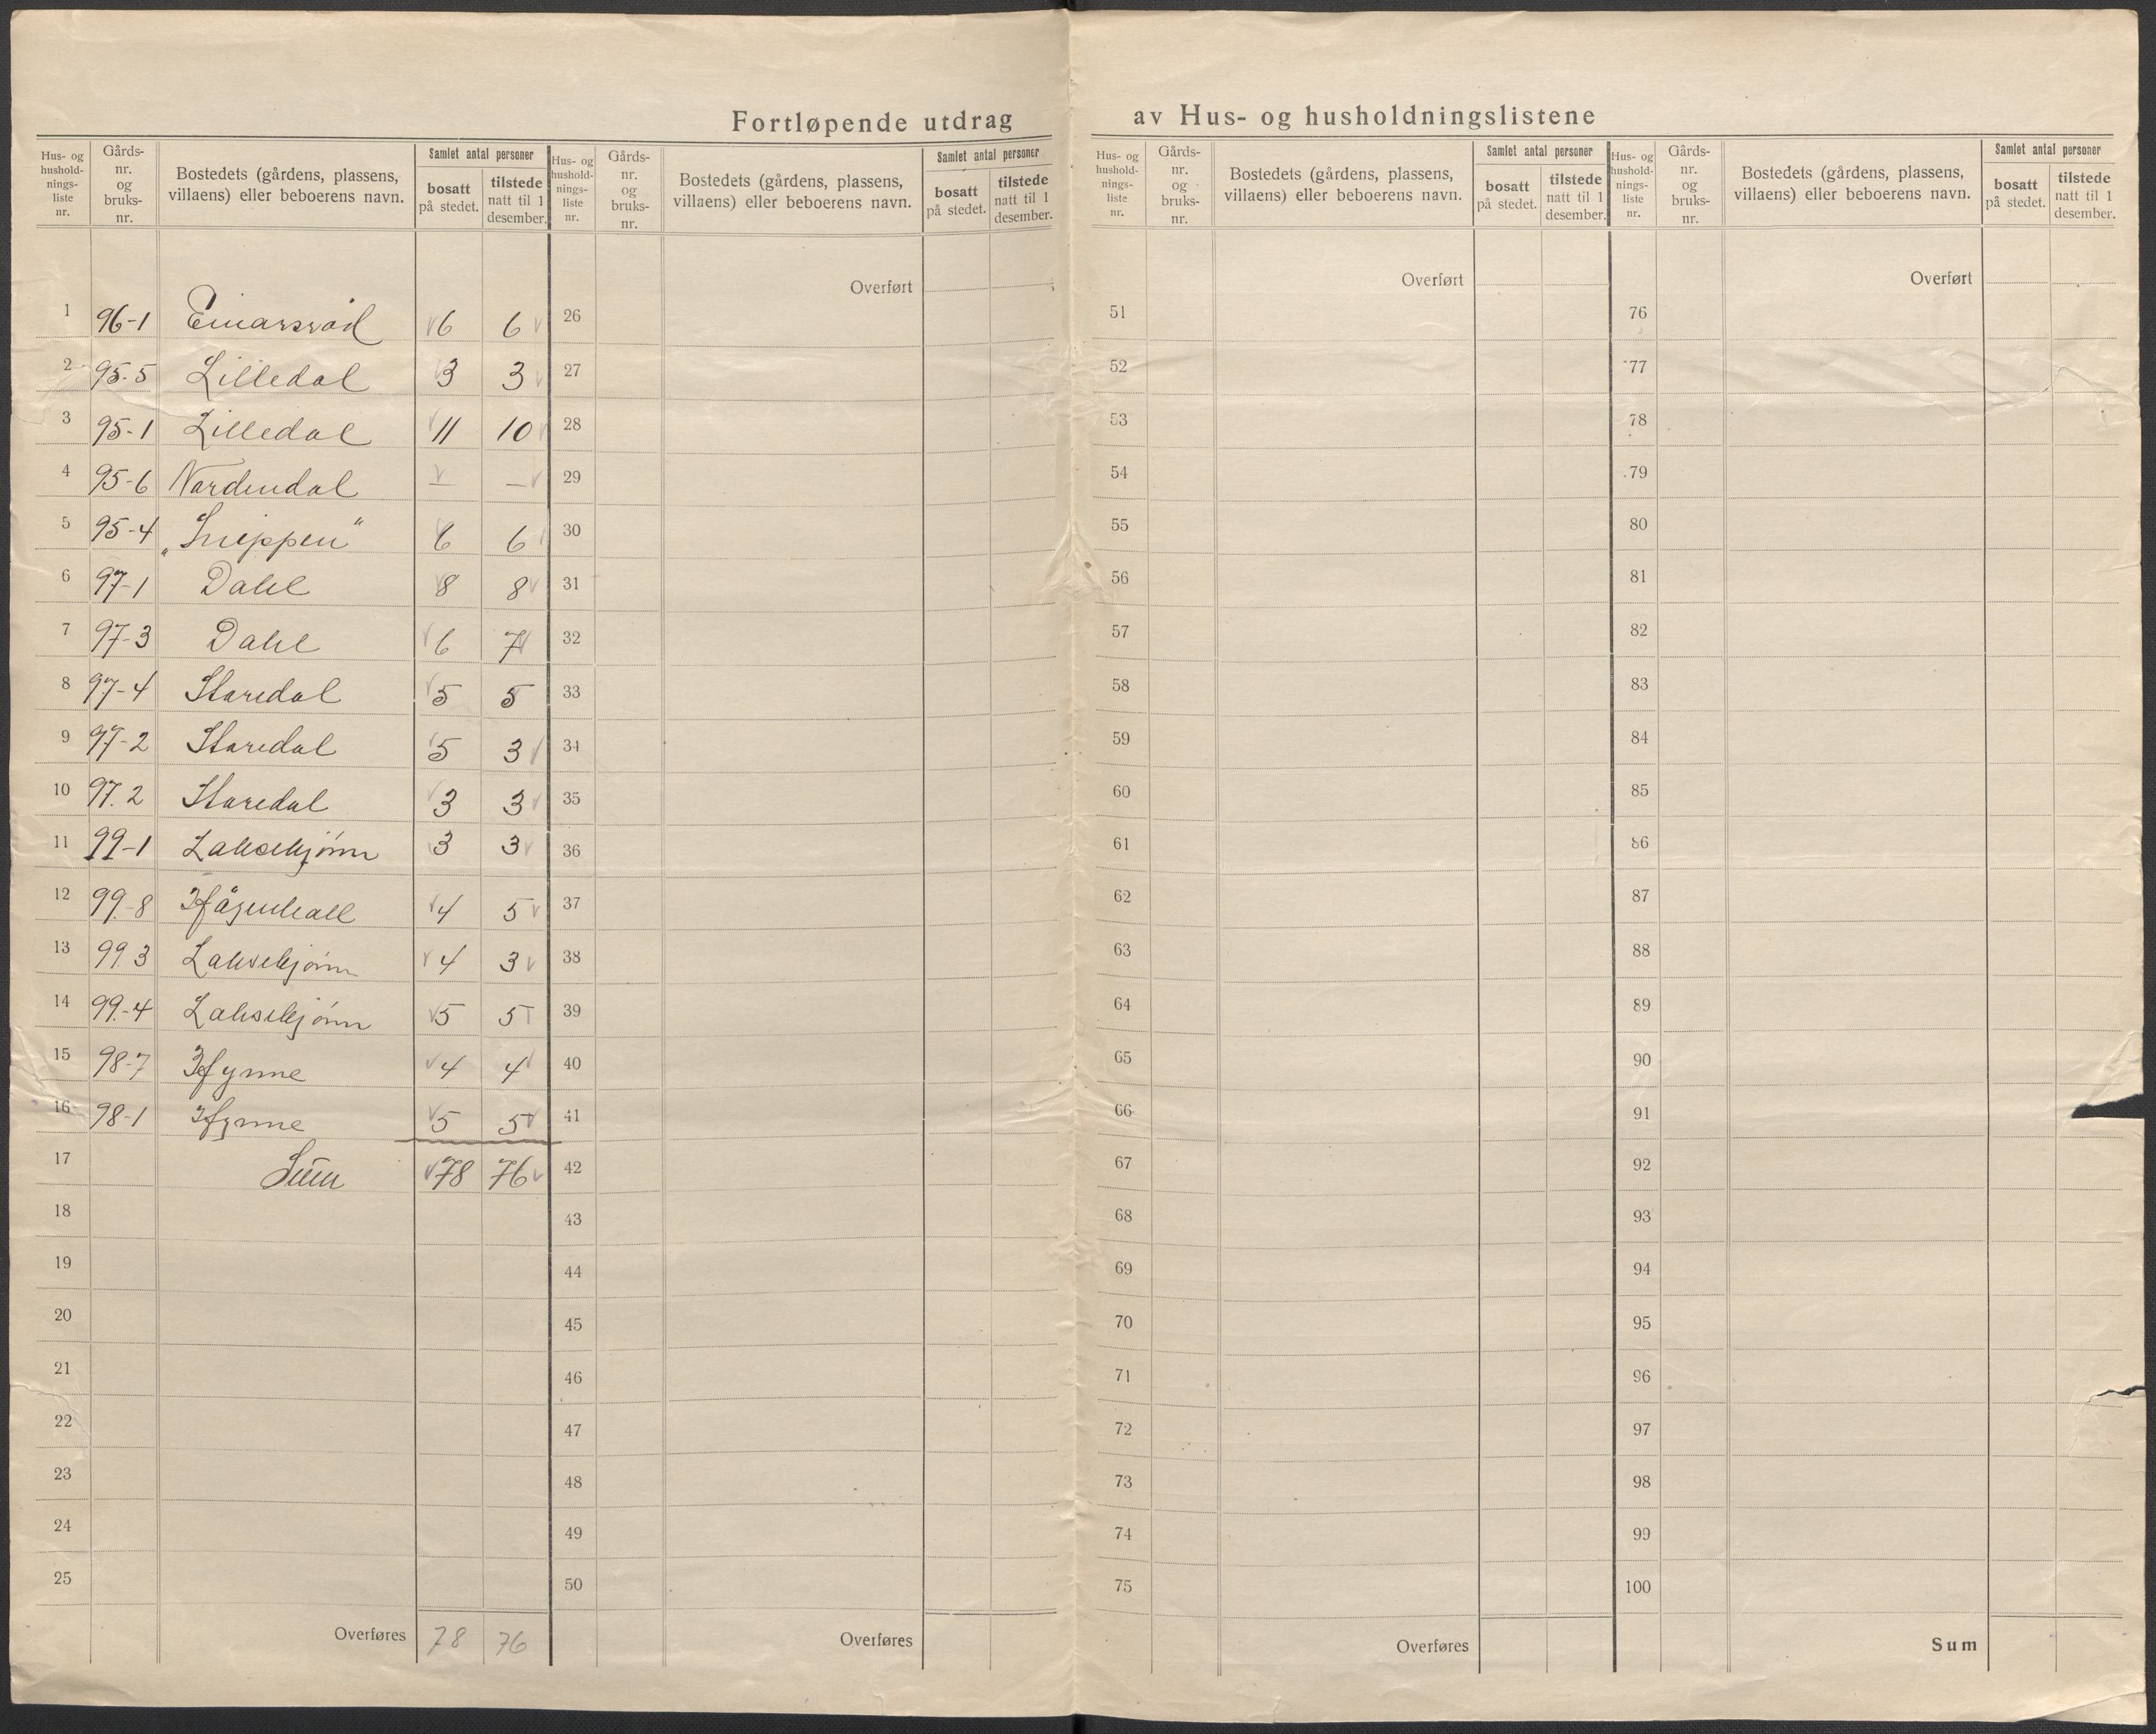 Fortløpende utdrag av Hus- og husholdningslistene
Hus- og hushold-nings-liste nr. Gårds-nr. og bruks-nr. Bostedets (gårdens, plassens, villaens) eller beboerens navn. Samlet antal personer bosatt på stedet. tilstede natt til 1 desember.
1 96-1 Einarsrød 6 6
2 95-5 Lilledal 3 3
3 95-1 Lilledal 11 10
4 95-6 Nordendal — —
5 95-4 „Snippen“ 6 6
6 97-1 Dahl 8 8
7 97-3 Dahl 6 7
8 97-4 Staredal 5 5
9 97-2 Staredal 5 3
10 97.2 Staredal 3 3
11 99-1 Laksekjønn 3 3
12 99-8 4 5
13 99.3 Laksekjønn 4 3
14 99-4 Laksekjønn 5 5
15 98-7 Hynne 4 4
16 98-1 Hynne 5 5
17 Sum 78 76
18
19
20
21
22
23
24
25
Overføres 78 76
Hus- og hushold-nings-liste nr. Gårds-nr. og bruks-nr. Bostedets (gårdens, plassens, villaens) eller beboerens navn. Samlet antal personer bosatt på stedet. tilstede natt til 1 desember.
Overført
26
27
28
29
30
31
32
33
34
35
36
37
38
39
40
41
42
43
44
45
46
47
48
49
50
Overføres
Hus- og hushold-nings-liste nr. Gårds-nr. og bruks-nr. Bostedets (gårdens, plassens, villaens) eller beboerens navn. Samlet antal personer bosatt på stedet. tilstede natt til 1 desember.
Overført
51
52
53
54
55
56
57
58
59
60
61
62
63
64
65
66
67
68
69
70
71
72
73
74
75
Overføres
Hus- og hushold-nings-liste nr. Gårds-nr. og bruks-nr. Bostedets (gårdens, plassens, villaens) eller beboerens navn. Samlet antal personer bosatt på stedet. tilstede natt til 1 desember.
Overført
76
77
78
79
80
81
82
83
84
85
86
87
88
89
90
91
92
93
94
95
96
97
98
99
100
Sum